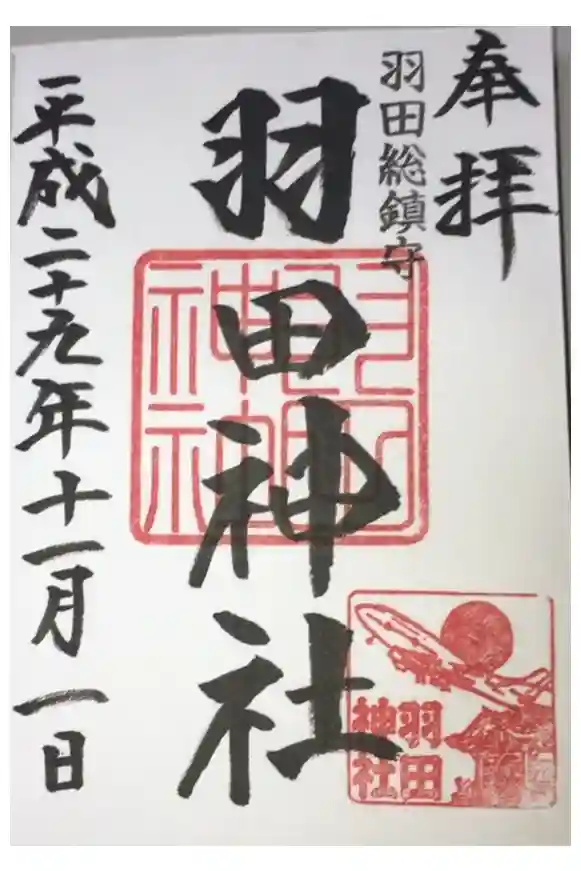 奉拝
羽田総鎮守
羽田神社
平成二十九年十一月一日
羽田
神社